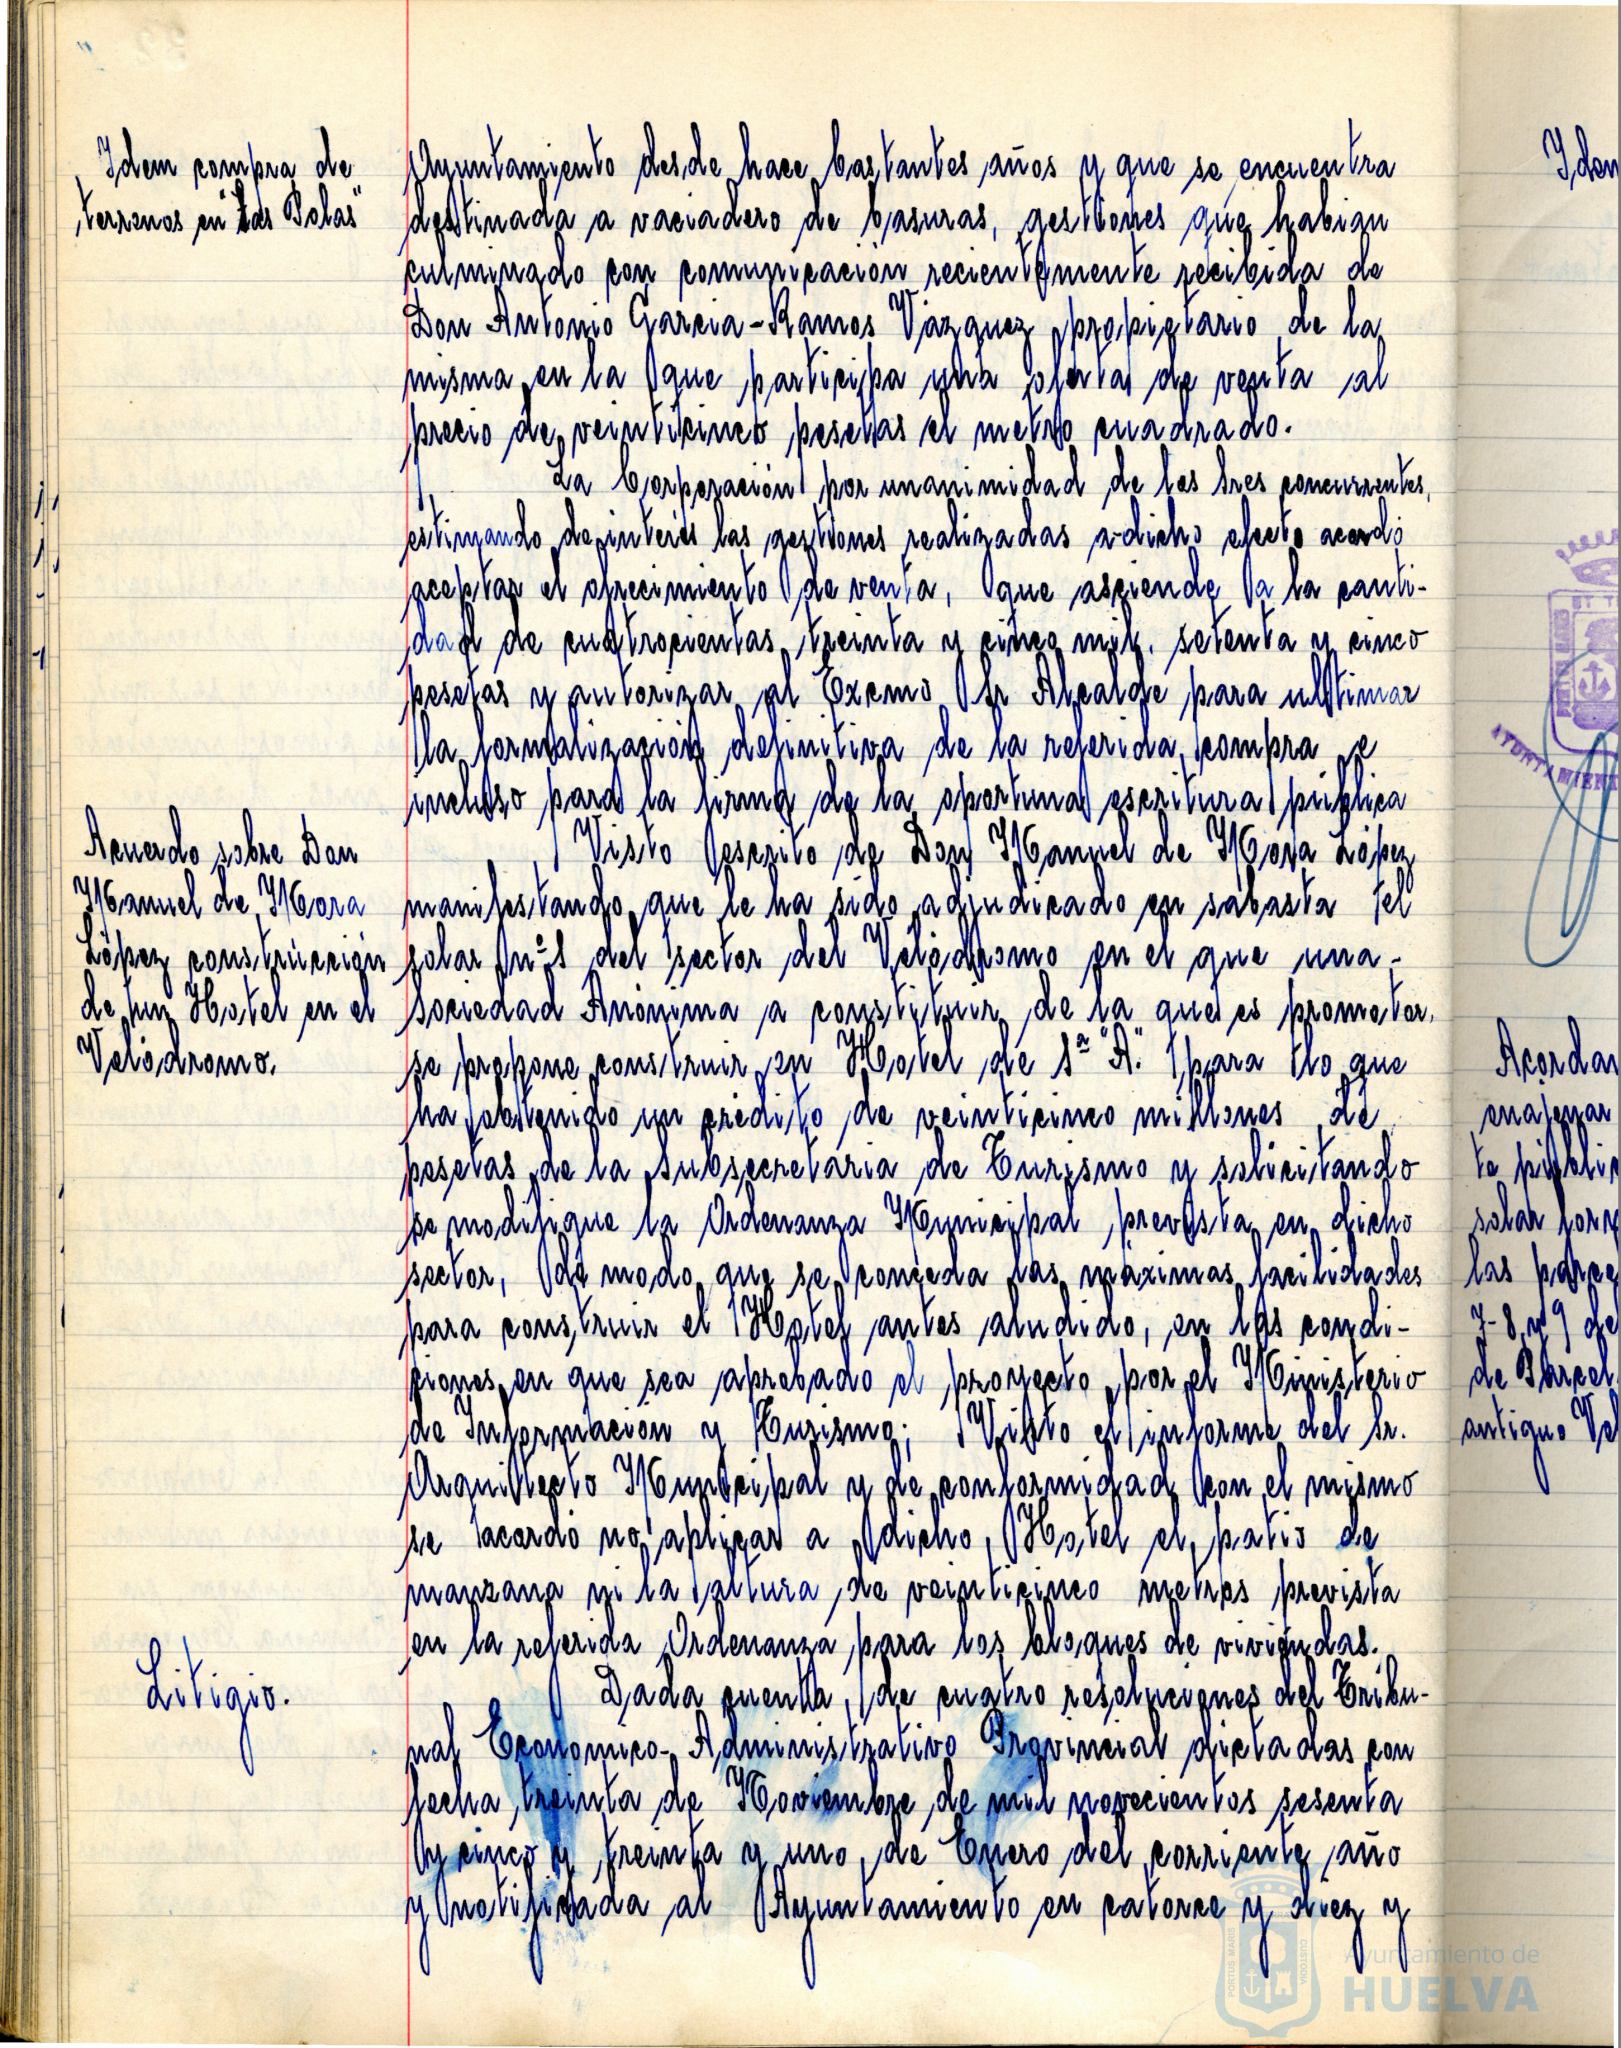 Idem compra de
terrenos en "Las Bolas"
Ayuntamiento desde hace bastantes años y que se encuentra
destinada a vaciadero de basuras, gestiones que habian
culminado con comunicación recientemente recibida de
Don Antonio Garcia-Ramos Vázquez propietario de la
misma en la que participa una oferta de venta al
precio de veinticinco pesetas el metro cuadrado.
La Corporación por unanimidad de los Sres concurrentes,
estimando de interés las gestiones realizadas a dicho efecto acordó
aceptar el ofrecimiento de venta, que asciende a la canti-
dad de cuatrocientas treinta y cinco mil setenta y cinco
pesetas y autorizar al Excmo Sr Alcalde para ultimar
la formalización definitiva de la referida compra e
incluso para la firma de la oportuna escritura pública
Acuerdo sobre Don
Manuel de Mora
López construcción
de un Hotel en el
Velódromo.
Visto escrito de Don Manuel de Mora López
manifestando que le ha sido adjudicado en subasta el
solar nº 1 del sector del Velódromo en el que una
Sociedad Anónima a constituir de la que es promotor,
se propone construir un Hotel de 1ª "A" para lo que
ha obtenido un crédito de veinticinco millones de
pesetas de la Subsecretaria de Turismo y solicitando
se modifique la Ordenanza Municipal prevista en dicho
sector, de modo que se conceda las máximas facilidades
para construir el Hotel antes aludido, en las condi-
ciones en que sea aprobado el proyecto por el Ministerio
de Información y Turismo; Visto el informe del Sr.
Arquitecto Municipal y de conformidad con el mismo
se acordó no aplicar a dicho Hotel el patio de
manzana ni la altura de veinticinco metros prevista
en la referida Ordenanza para los bloques de viviendas.
Litigio.
Dada cuenta de cuatro resoluciones del Tribu-
nal Económico-Administrativo Provincial dictadas con
fecha treinta de Noviembre de mil novecientos sesenta
y cinco y treinta y uno de Enero del corriente año
y notificada al Ayuntamiento en catorce y diez y
Idem
Acordar
enajenar
te públic
solar form
las parce
7-8 y 9 de
de Parcel
antiguo Vel
AYUNTAMIEN
PORTUS MARIS
CUSTODIA
Ayuntamiento de
HUELVA